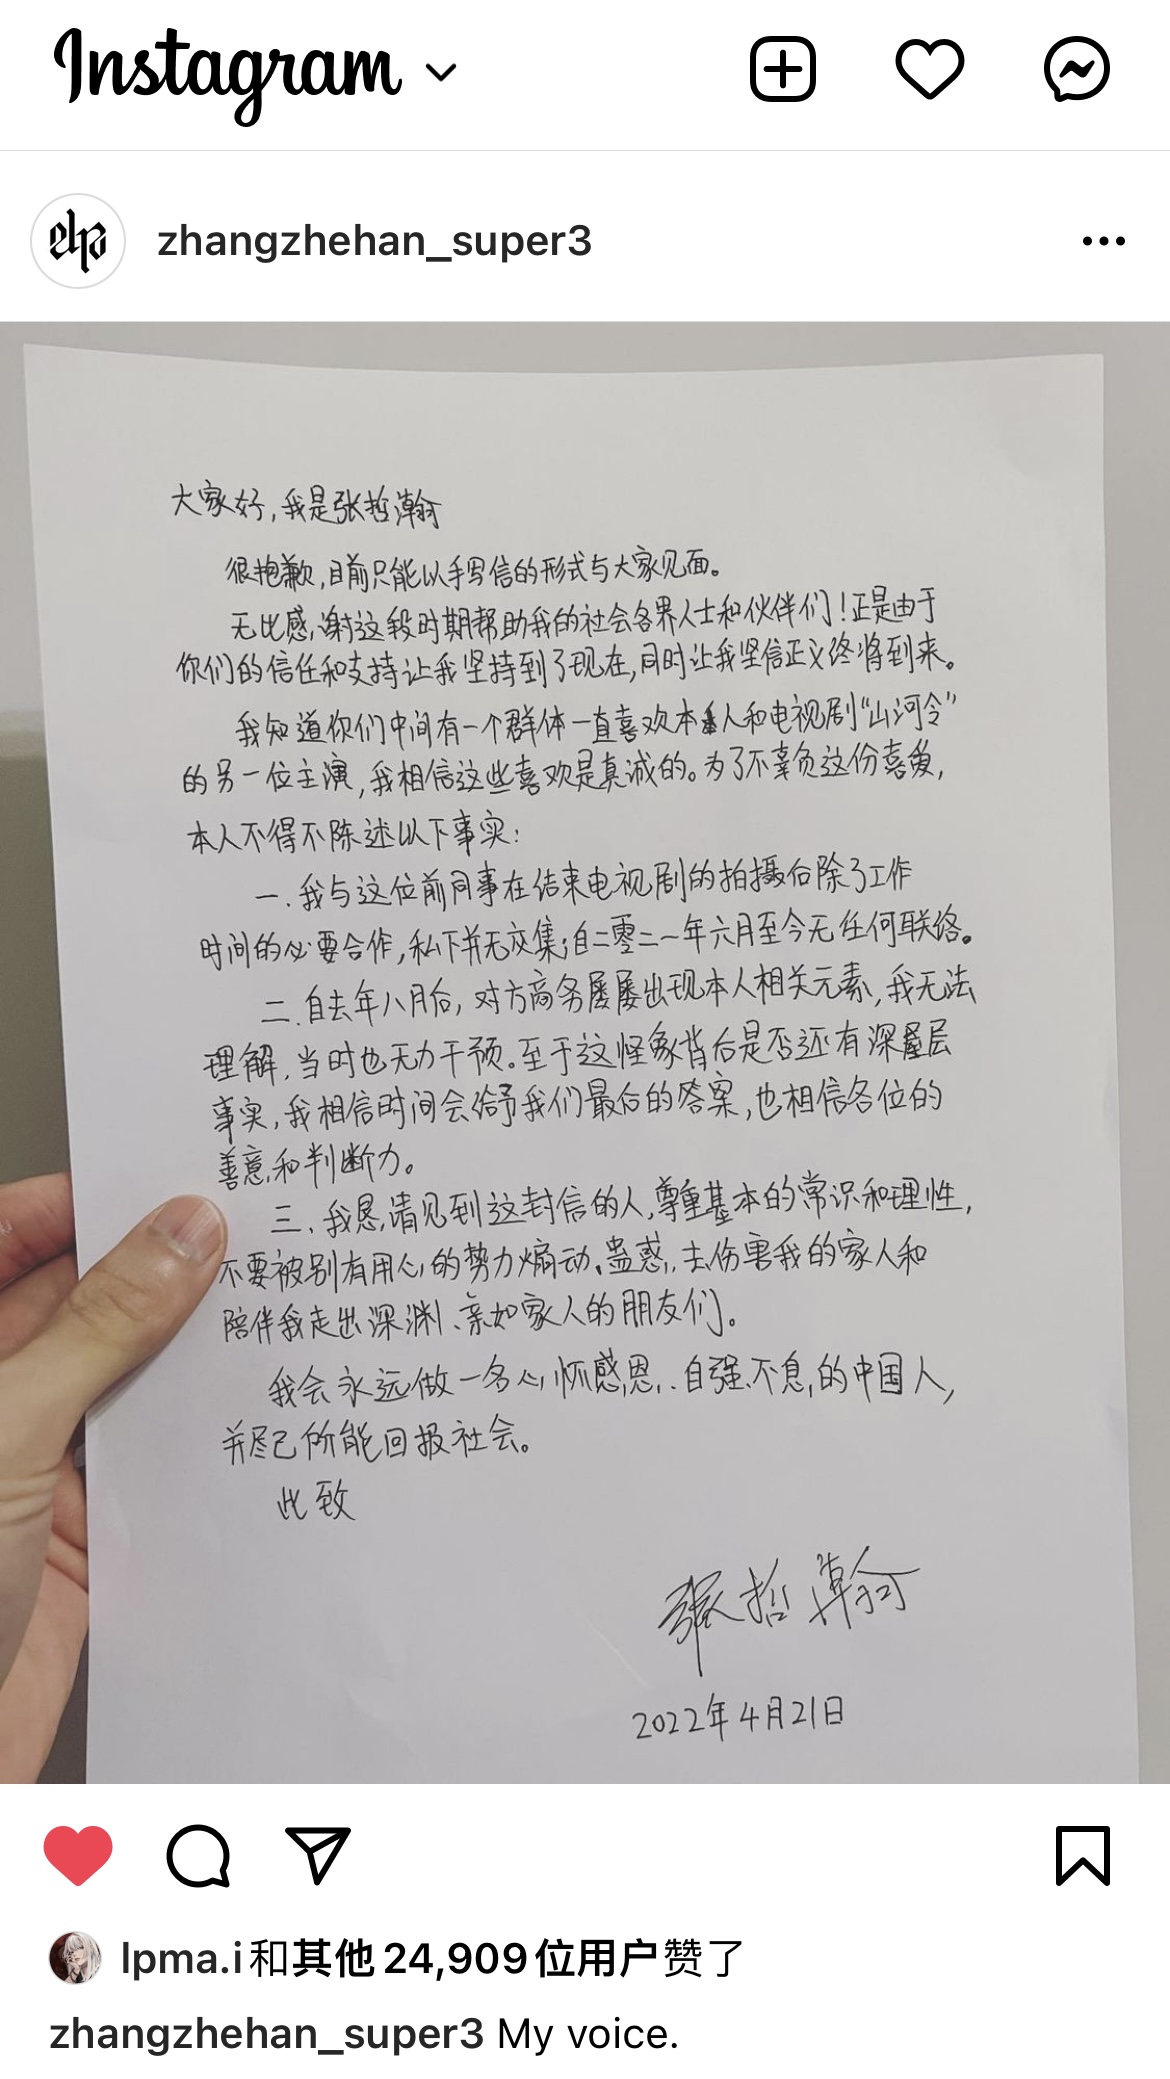 Instagram
zhangzhehan_super3
大家好,我是张哲瀚
很抱歉,目前只能以手写信的形式与大家见面。
无比感谢这段时期帮助我的社会各界人士和伙伴们!正是由于
你们的信任和支持让我坚持到了现在,同时让我坚信正义终将到来。
我知道你们中间有一个群体一直喜欢本人和电视剧“山河令”
的另一位主演,我相信这些喜欢是真诚的。为了不辜负这份喜爱,
本人不得不陈述以下事实:
一.我与这位前同事在结束电视剧的拍摄后除了工作
时间的必要合作,私下并无交集;自二零二一年六月至今无任何联络。
二.自去年八月后,对方商务屡屡出现本人相关元素,我无法
理解,当时也无力干预。至于这怪象背后是否还有深层
事实,我相信时间会给予我们最后的答案,也相信各位的
善意和判断力。
三.我恳请见到这封信的人,尊重基本的常识和理性,
不要被别有用心的势力煽动、蛊惑,去伤害我的家人和
陪伴我走出深渊、亲如家人的朋友们。
我会永远做一名心怀感恩、自强不息的中国人,
并尽己所能回报社会。
此致
张哲瀚
2022年4月21日
lpma.i和其他 24,909 位用户赞了
zhangzhehan_super3 My voice.